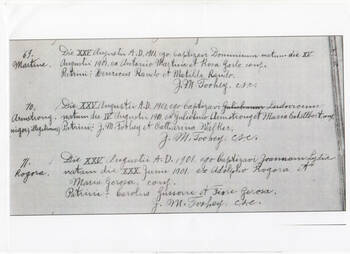 69.
Martine.
Die XXV Augustii A.D. 1901. ego baptizavi Dominicum natum die XV
Augustii 1901. ex Antonio Martine et Rosa conj.
Patrini: Henricus et Matilda
J. M. Toohey, c.s.c.
70.
Armstrong.
Die XXV Augustii A.D. 1901. ego baptizavi Ludovicum
natum die IV Augustii ex Armstrong et Maria
Patrini: J. M. Toohey et Catharina Welker.
J. M. Toohey. C.S.C.
71.
Rogora.
Die XXV Augustii A.D. 1901. ego baptizavi Joannam
natam die XXX Junii 1901. ex Adolpho Rogora et
Maria Gerosa, conj.
Patrini: Carolus et Gerosa.
J. M. Toohey. C.S.C.